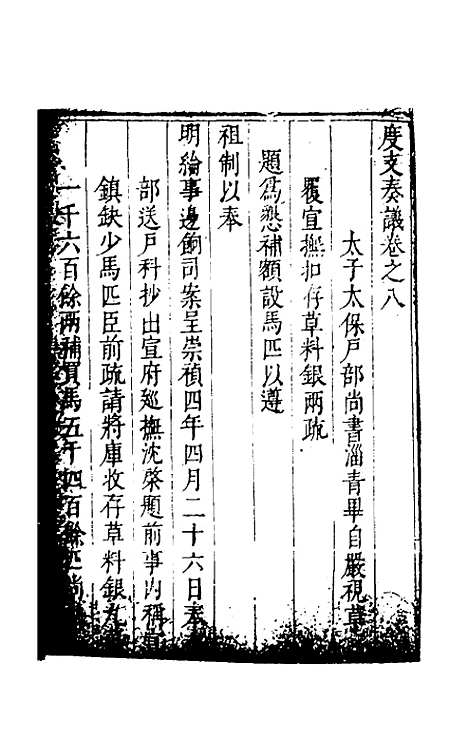 度支奏議卷之八
太子太保戶部尚書淄青畢自嚴視草
覆宣撫扣存草料銀兩疏
題爲懇補額設馬匹以遵
祖制以奉
明綸事邊餉司案呈崇禎四年四月二十六日奉
部送戶科抄出宣府廵撫沈棨題前事內稱
鎮缺少馬匹臣前疏請將庫收存草料銀九
一千六百餘兩補買馬五千四百餘匹尚